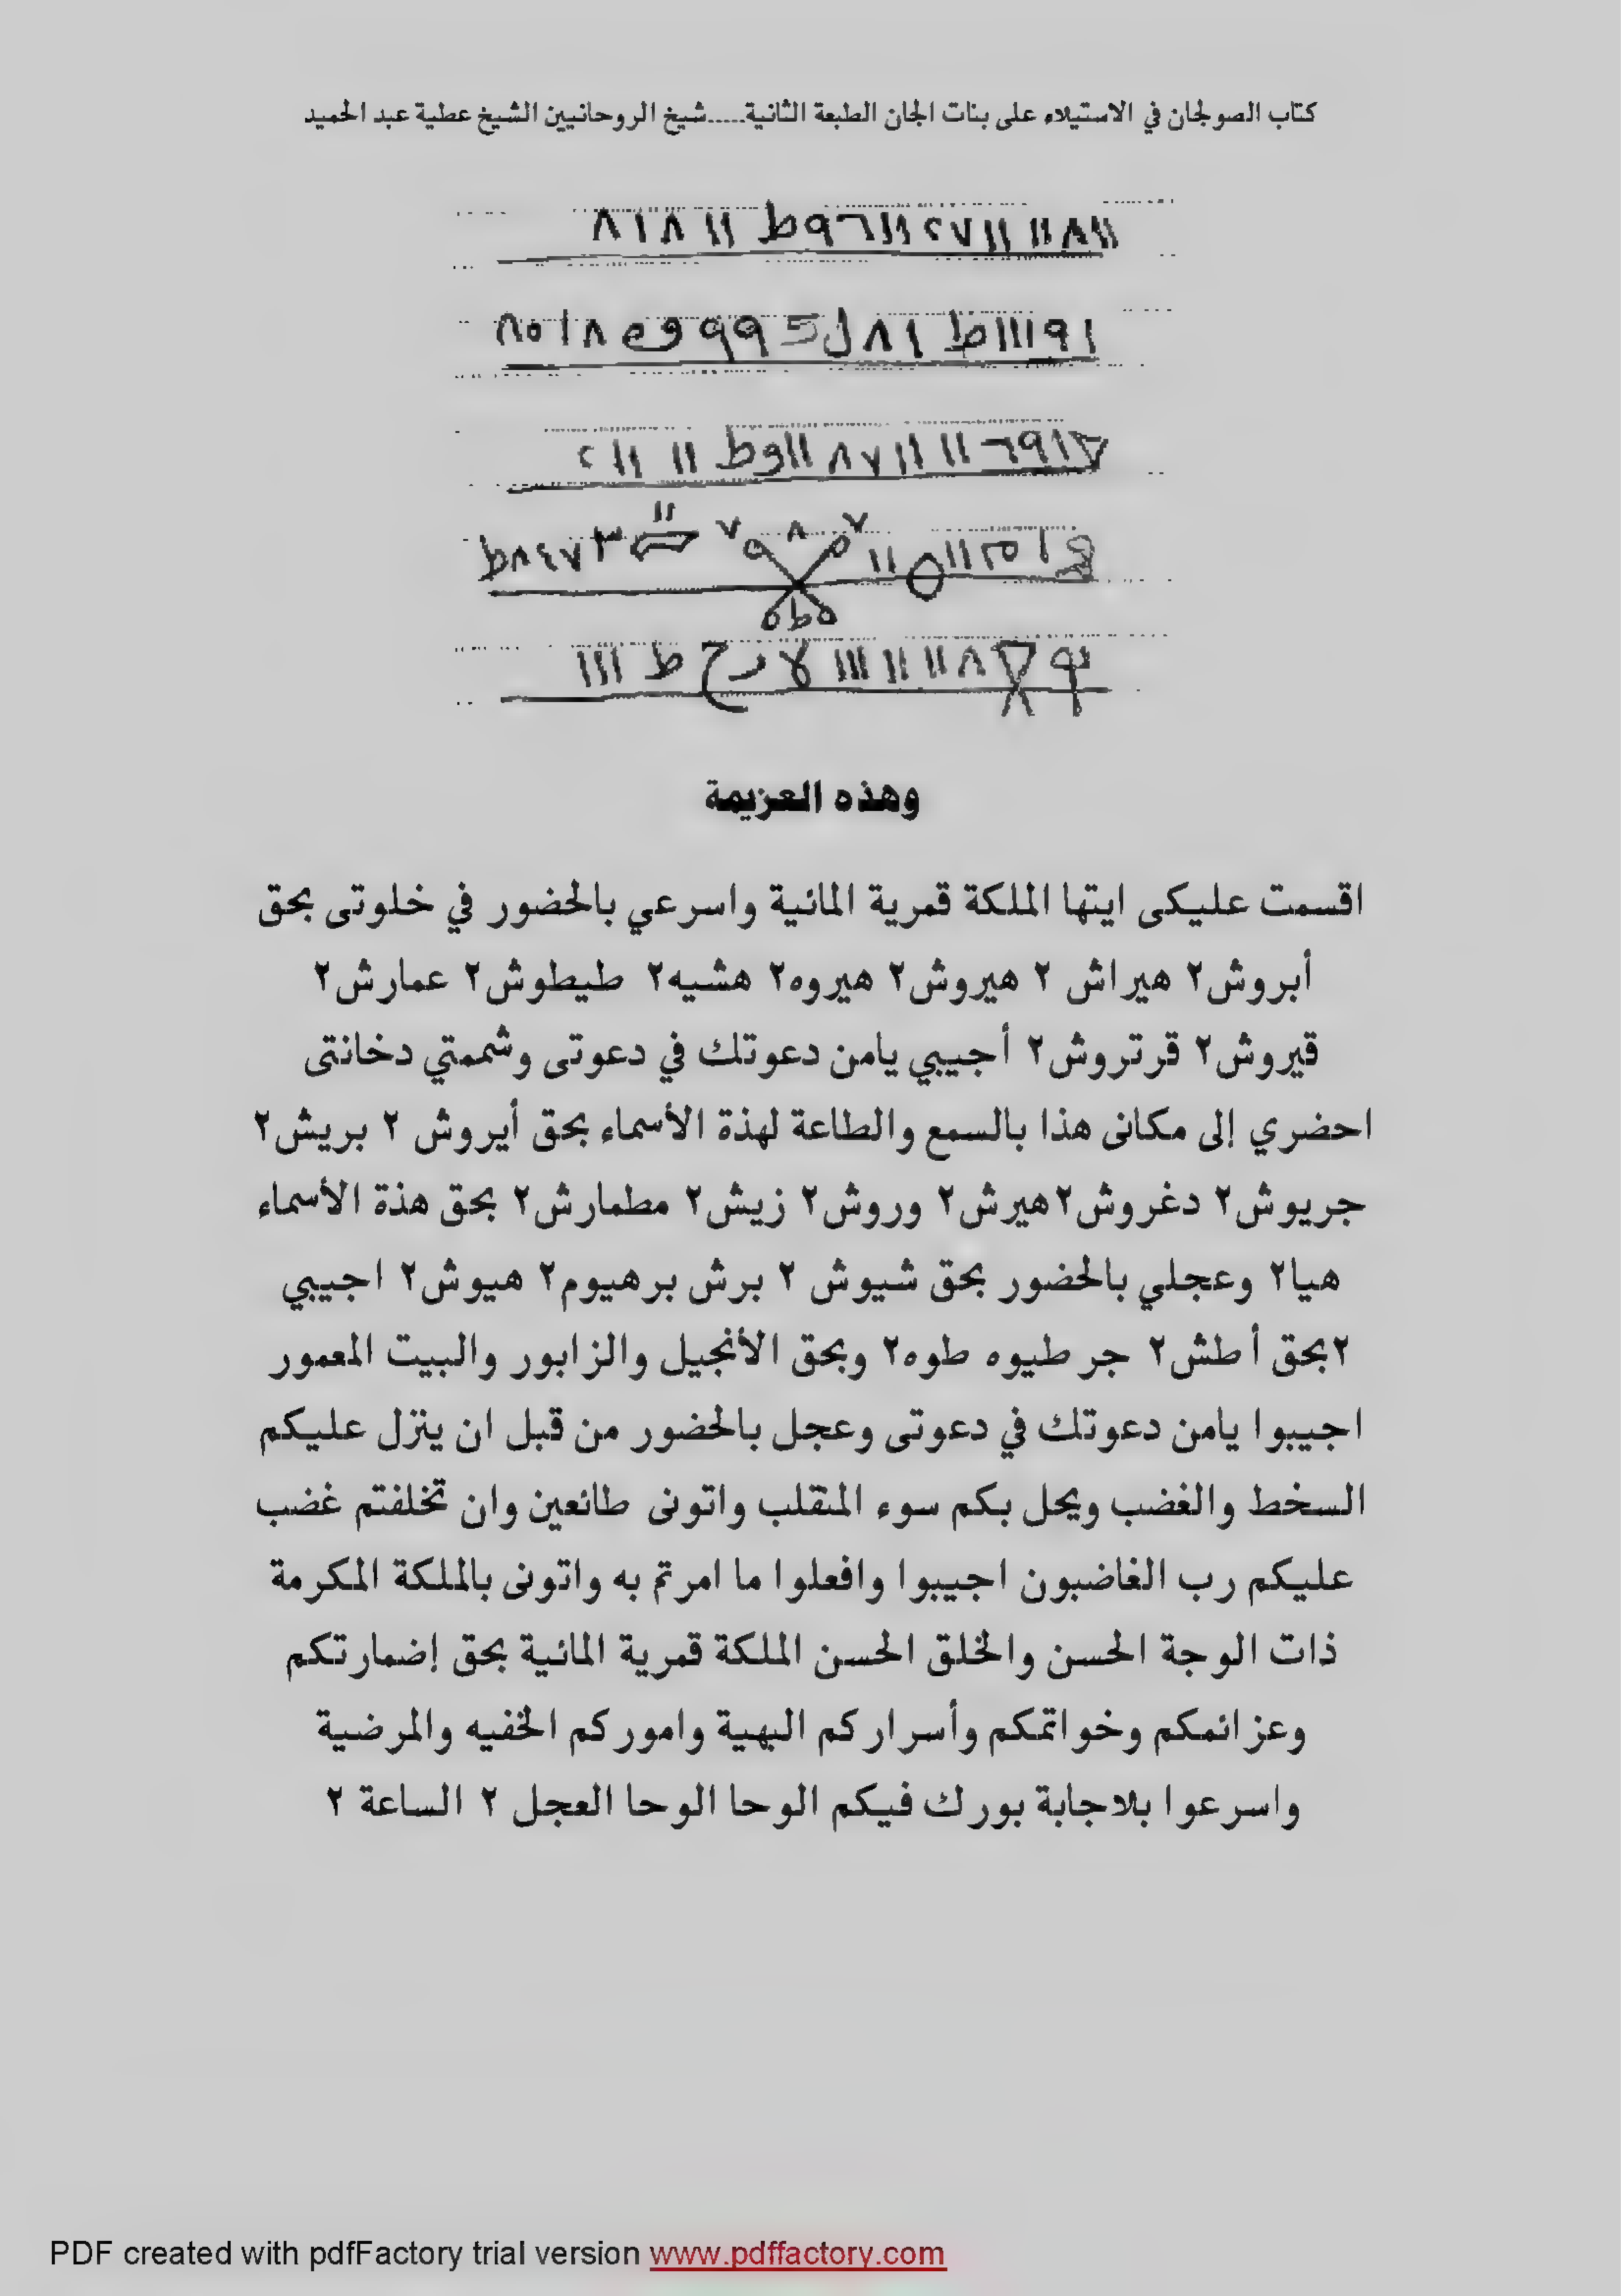 كتاب الصولجان في الاستيلاء على بنات الجان الطبعة الثانية.....شيخ الروحانيين الشيخ عطية عبد الحميد
وهذه العزيمة
اقسمت عليكى ايتها الملكة قمرية المائية واسرعي بالحضور في خلوتى بحق
أبروش٢ هيراش ٢ هيروش٢ هيروه٢ هشيه٢ طيطوش٢ عمارش٢
قيروش٢ قرتروش٢ أجيبي يامن دعوتك في دعوتى وشممتي دخانتى
احضري إلى مكانى هذا بالسمع والطاعة لهذة الأسماء بحق أيروش ٢ بريش٢
جريوش٢ دغروش٢هيرش٢ وروش٢ زيش٢ مطمارش٢ بحق هذة الأسماء
هيا٢ وعجلي بالحضور بحق شيوش ٢ برش برهيوم٢ هيوش٢ اجيبي
٢بحق أطش٢ جر طيوه طوه٢ وبحق الأنجيل والزابور والبيت المعمور
اجيبوا يامن دعوتك في دعوتى وعجل بالحضور من قبل ان ينزل عليكم
السخط والغضب ويحل بكم سوء المنقلب واتونى طائعين وان تخلفتم غضب
عليكم رب الغاضبون اجيبوا وافعلوا ما امرتم به واتونى بالملكة المكرمة
ذات الوجة الحسن والخلق الحسن الملكة قمرية المائية بحق إضمارتكم
وعزائمكم وخواتمكم وأسراركم البهية واموركم الخفيه والمرضية
واسرعوا بلاجابة بورك فيكم الوحا الوحا العجل ٢ الساعة ٢
PDF created with pdfFactory trial version www.pdffactory.com